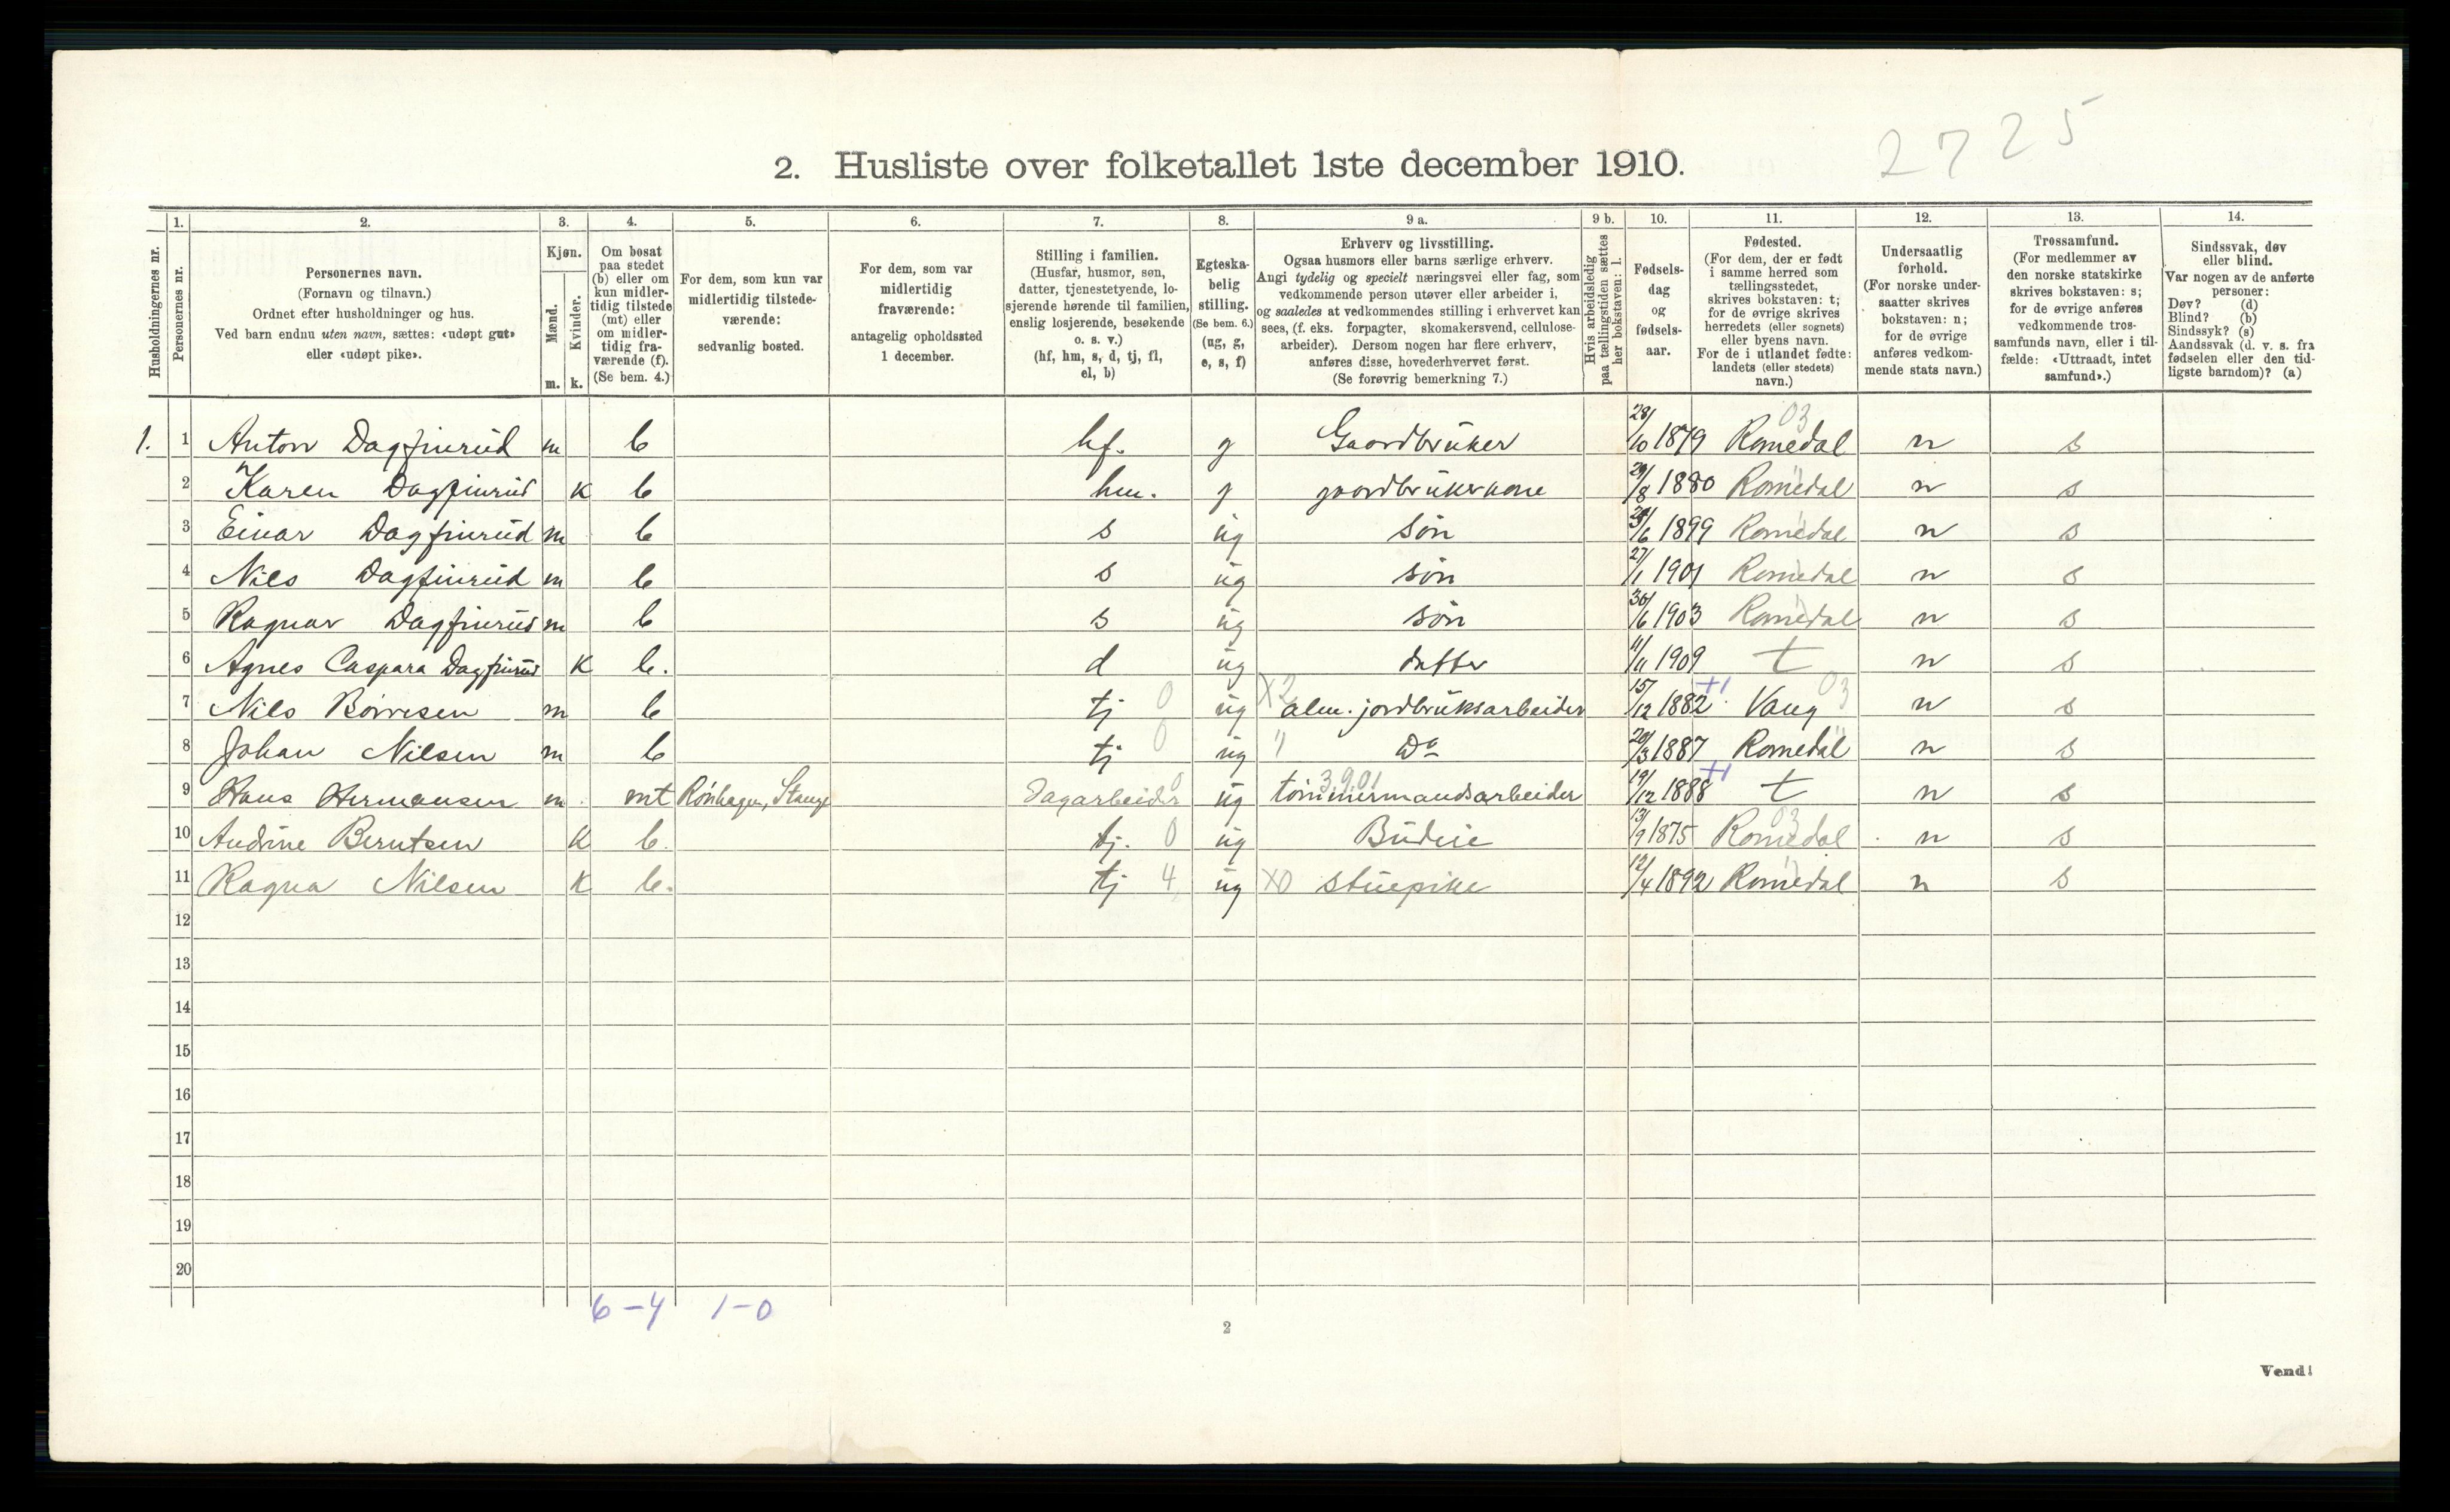 2725
2. Husliste over folketallet 1ste december 1910.
Husholdningernes nr.
1. Personernes nr.
2. Personernes navn.
(Fornavn og tilnavn.)
Ordnet efter husholdninger og hus.
Ved barn endnu uten navn, sættes: «udøpt gut»
eller «udøpt pike».
3. Kjøn.
Mænd. m.
Kvinder. k.
4. Om bosat
paa stedet
(b) eller om
kun midler-
tidig tilstede
(mt) eller
om midler-
tidig fra-
værende (f).
(Se bem. 4.)
5. For dem, som kun var
midlertidig tilstede-
værende:
sedvanlig bosted.
6. For dem, som var
midlertidig
fraværende:
antagelig opholdssted
1 december.
7. Stilling i familien.
(Husfar, husmor, søn,
datter, tjenestetyende, lo-
sjerende hørende til familien,
enslig losjerende, besøkende
o. s. v.)
(hf, hm, s, d, tj, fl,
el, b)
8. Egteska-
belig
stilling.
(Se bem. 6.)
(ug, g,
e, s, f)
9 a. Erhverv og livsstilling.
Ogsaa husmors eller barns særlige erhverv.
Angi tydelig og specielt næringsvei eller fag, som
vedkommende person utøver eller arbeider i,
og saaledes at vedkommendes stilling i erhvervet kan
sees, (f. eks. forpagter, skomakersvend, cellulose-
arbeider). Dersom nogen har flere erhverv,
anføres disse, hovederhvervet først.
(Se forøvrig bemerkning 7.)
9 b. Hvis arbeidsledig
paa tællingstiden sættes
her bokstaven: l.
10. Fødsels-
dag
og
fødsels-
aar.
11. Fødested.
(For dem, der er født
i samme herred som
tællingsstedet,
skrives bokstaven: t;
for de øvrige skrives
herredets (eller sognets)
eller byens navn.
For de i utlandet fødte:
landets (eller stedets)
navn.)
12. Undersaatlig
forhold.
(For norske under-
saatter skrives
bokstaven: n;
for de øvrige
anføres vedkom-
mende stats navn.)
13. Trossamfund.
(For medlemmer av
den norske statskirke
skrives bokstaven: s;
for de øvrige anføres
vedkommende tros-
samfunds navn, eller i til-
fælde: «Uttraadt, intet
samfund».)
14. Sindssvak, døv
eller blind.
Var nogen av de anførte
personer:
Døv? (d)
Blind? (b)
Sindssyk? (s)
Aandssvak (d. v. s. fra
fødselen eller den tid-
ligste barndom)? (a)
1. 1 Anton Dagfinrud m b hf. g Gaardbruker 28/10 1879 Romedal 03 n s
2 Karen Dagfinrud k b hm. g gaardbrukerkone 29/8 1880 Romedal n s
3 Einar Dagfinrud m b s ug søn /6 1899 Romedal n s
4 Nils Dagfinrud m b s ug søn 27/1 1901 Romedal n s
5 Ragnar Dagfinrud m b s ug søn 30/6 1903 Romedal n s
6 Agnes Caspara Dagfinrud k b. d ug datter 11/11 1909 t n s
7 Nils Børresen m b tj 0 ug X2 alm. jordbruksarbeider 15/12 1882 +1 Vang 03 n s
8 Johan Nilsen m b tj 0 ug " Do 20/3 1887 Romedal " n s
9 Hans Hermansen m mt Rønhagen, Stange Dagarbeider 0 ug 3901 tømmermandsarbeider 19/12 1888 +1 t n s
10 Andrine Berntsen k b. tj. 0 ug Budeie 13/9 1875 Romedal 03 n s
11 Ragna Nilsen k b. tj 4 ug X0 stuepike 12/4 1892 Romedal n s
12
13
14
15
16
17
18
19
20
6-4 1-0
2
Vend!